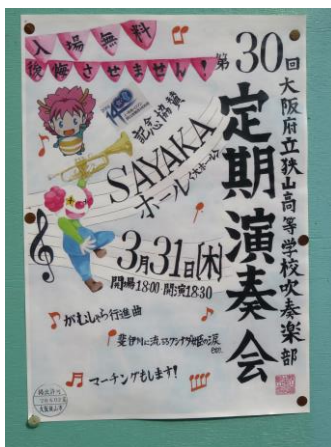 入場無料
後悔させません!
第30回
大阪府立狭山高等学校吹奏楽部
定期演奏会
1400
記念協賛
SAYAKA
ホール<大ホール>
3月31日[木]
開場18:00・開演18:30
がむしゃら行進曲
斐伊川に流るるクシナダ姫の涙
マーチングもします!